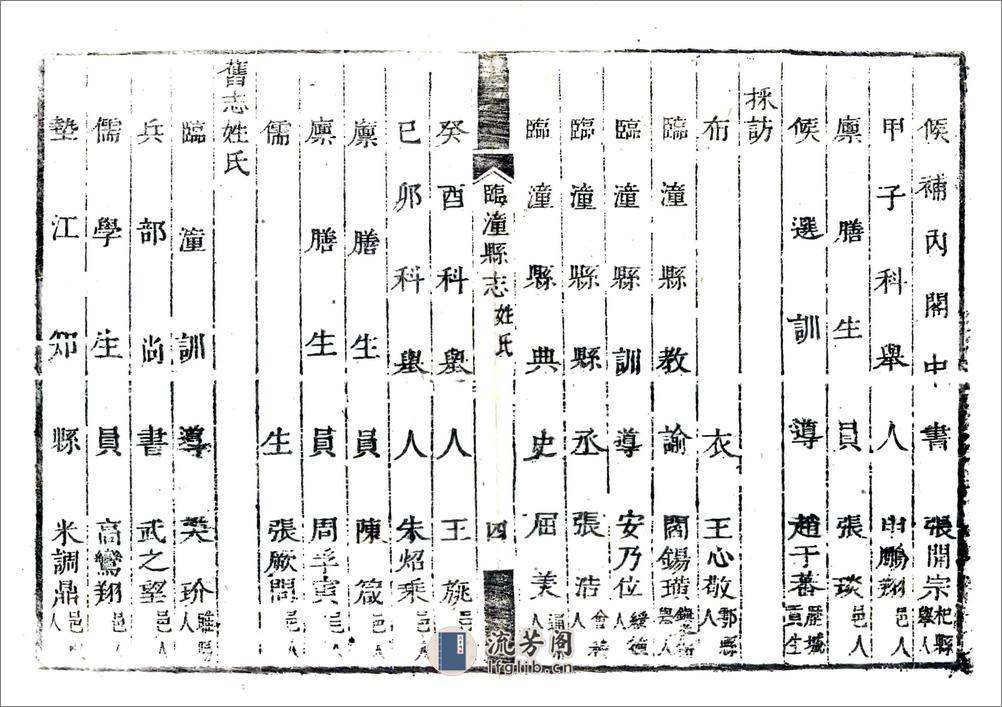 候補內閣中書 張開宗 杞縣舉人
甲子科舉人 申鵬翔 邑人
廪膳生員 張琰 邑人
候選訓導 趙于蕃 歷城貢生
採訪
布衣 王心敬 鄠縣人
臨潼縣教諭 閻錫璜 人
臨潼縣訓導 安乃位 綏德人
臨潼縣縣丞 張浩 會
臨潼縣典史 屈美 人
臨潼縣志 姓氏 四
癸酉科舉人 王 邑人
己卯科舉人 朱炤乘 邑人
廪膳生員 陳箴 邑人
廪膳生員 周孚寅 邑人
儒生 張厥問 邑人
舊志姓氏
臨潼訓導 樊玠
兵部尚書 武之望 邑人
儒學生員 高鸞翔 邑人
墊江知縣 米調鼎 邑人
流芳阁
lfglib.cn